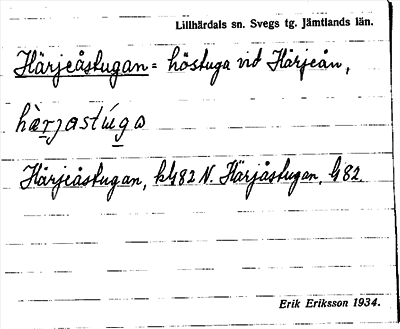 Lillhärdals sn. Svegs tg. Jämtlands län.
Härjeåstugan = höstuga vid Härjeån,
hàrjastúga
Härjeåstugan, k482 N. Härjåstugan, 482
Erik Eriksson 1934.